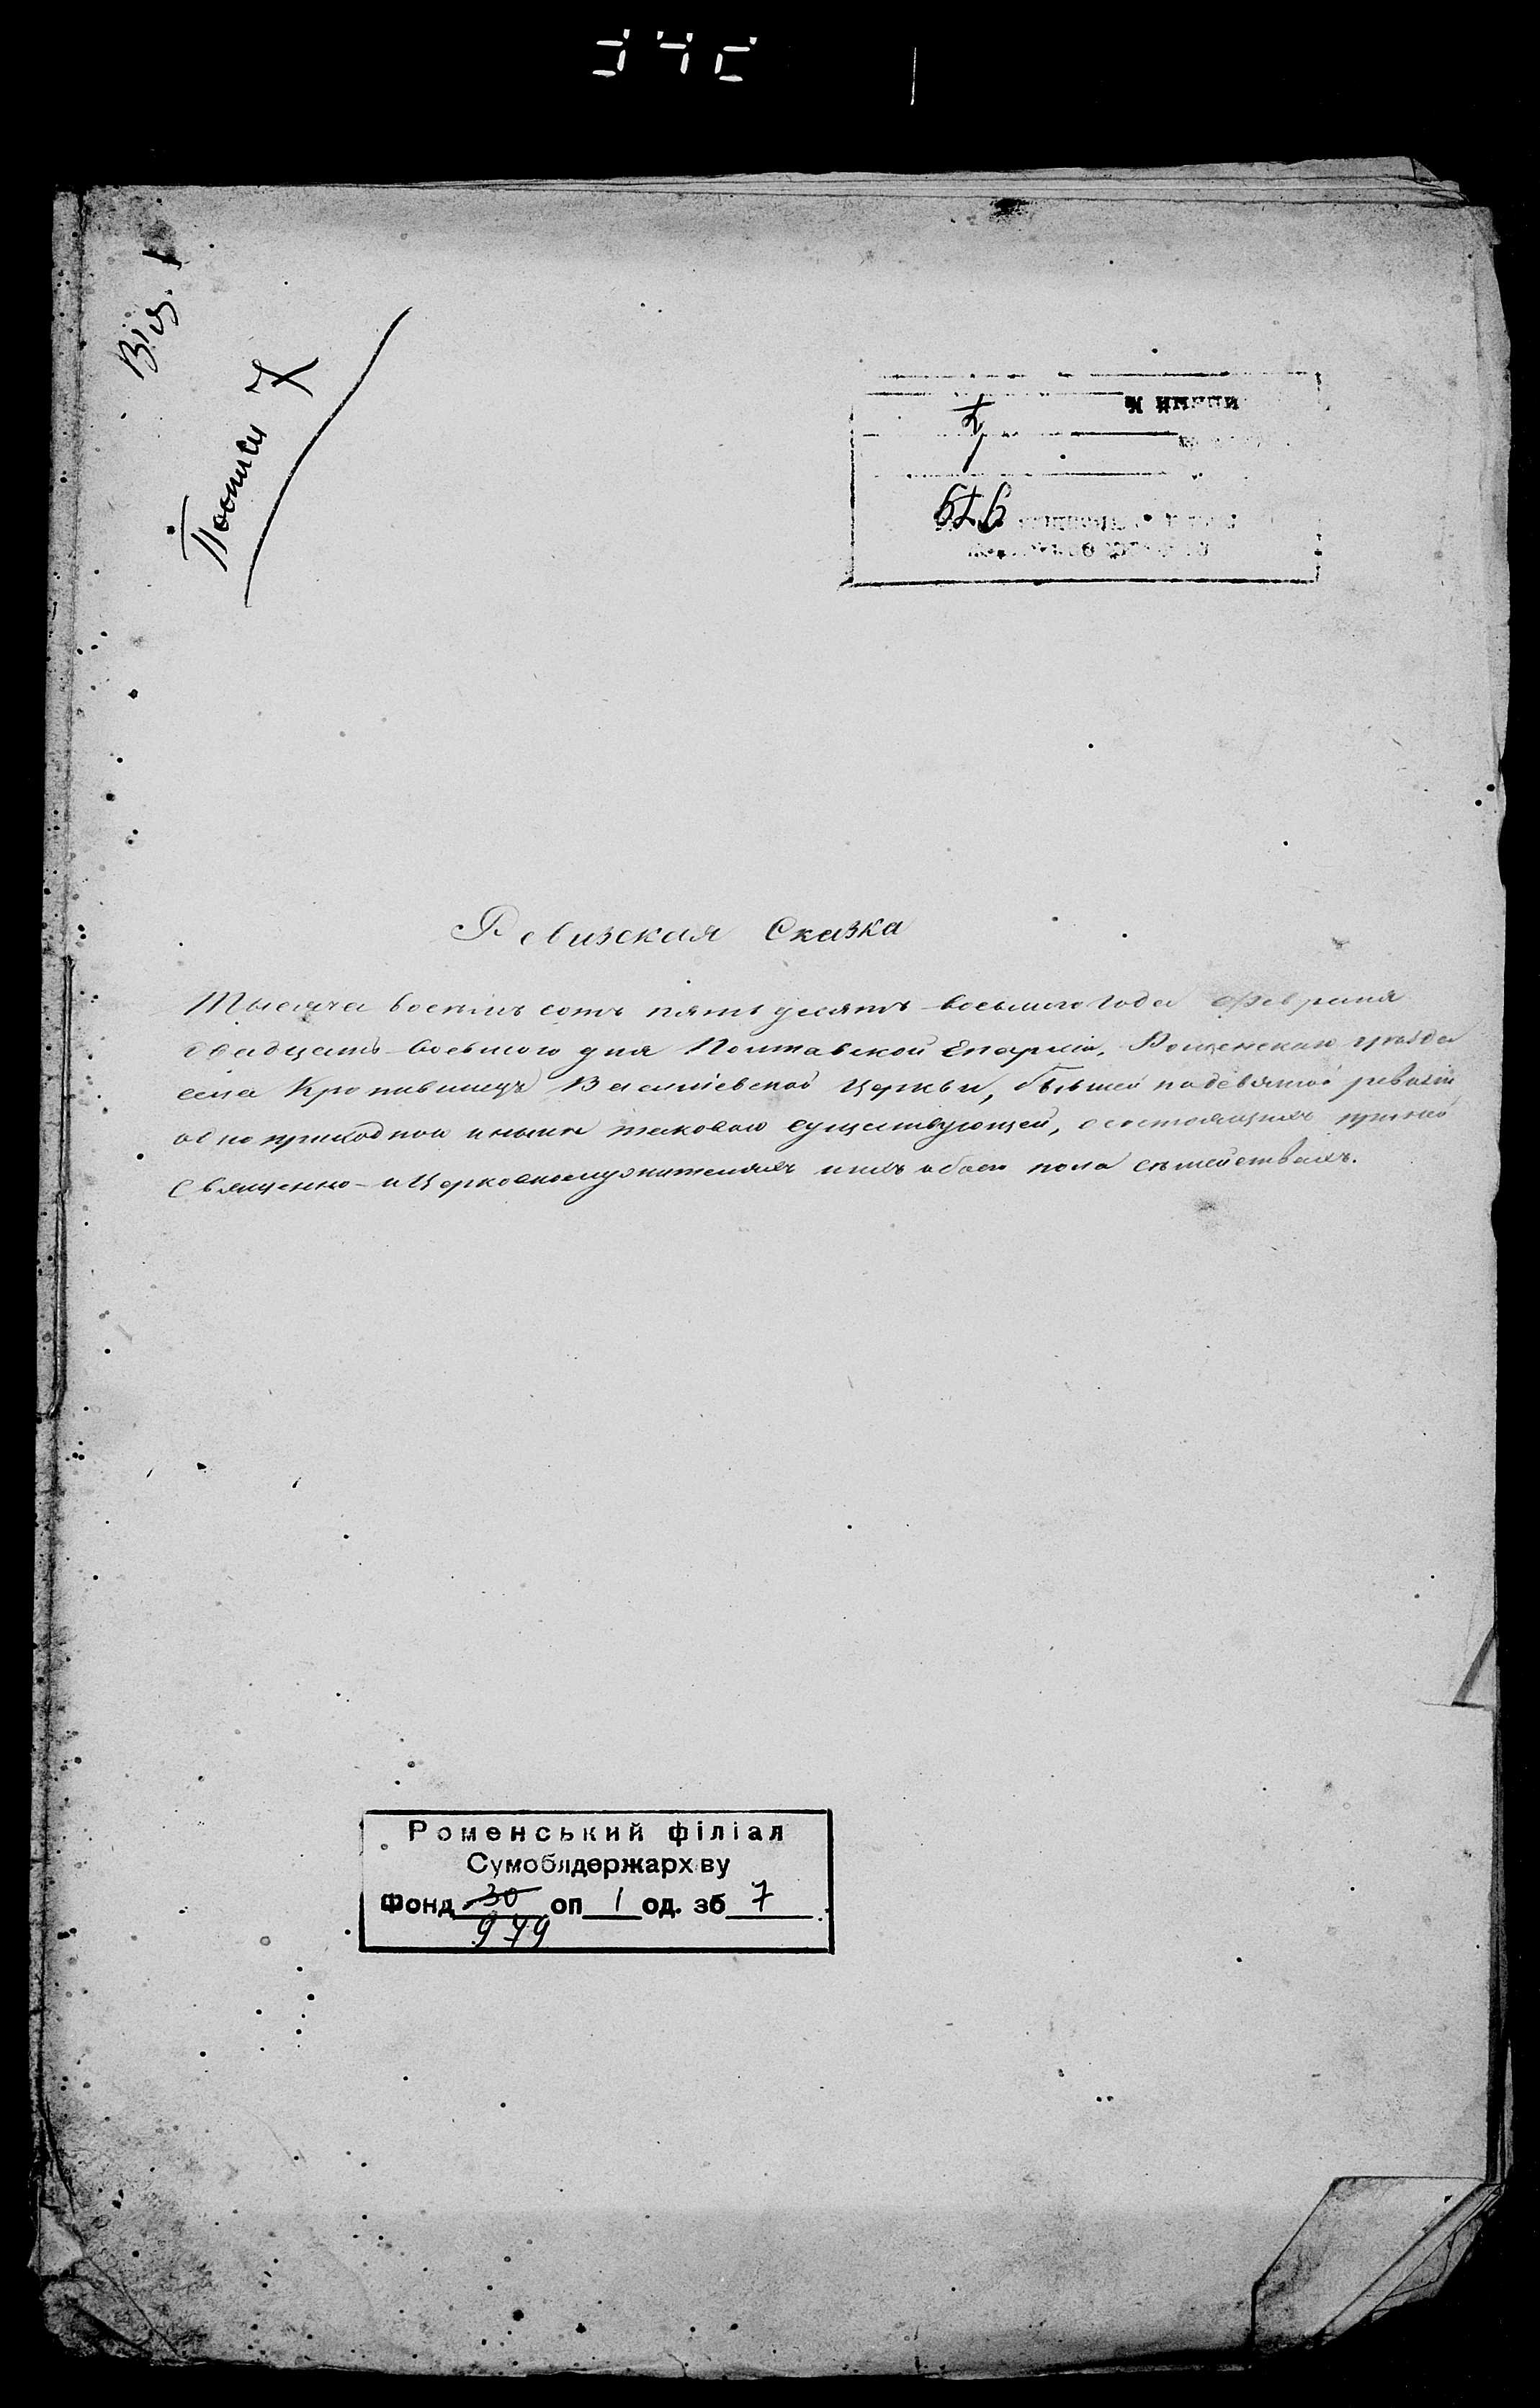 Від. 1
По описи 7
7
Ревизская Сказка
Тысяча восемь сотъ пятьдесятъ восьмого года февраля
двадцать восьмого дня Полтавской Епархіи, Роменскаго уѣзда
села Кропивинецъ Василіевской Церкви, бывшей по девятой ревизіи
одноприходной и нынѣ таковою существующей, о состоящихъ при ней
Священно- и Церковнослужителяхъ и ихъ обоего пола сѣмействахъ.
Роменський філіал
Сумоблдержархіву
Фонд 30 оп 1 од. зб 7
979